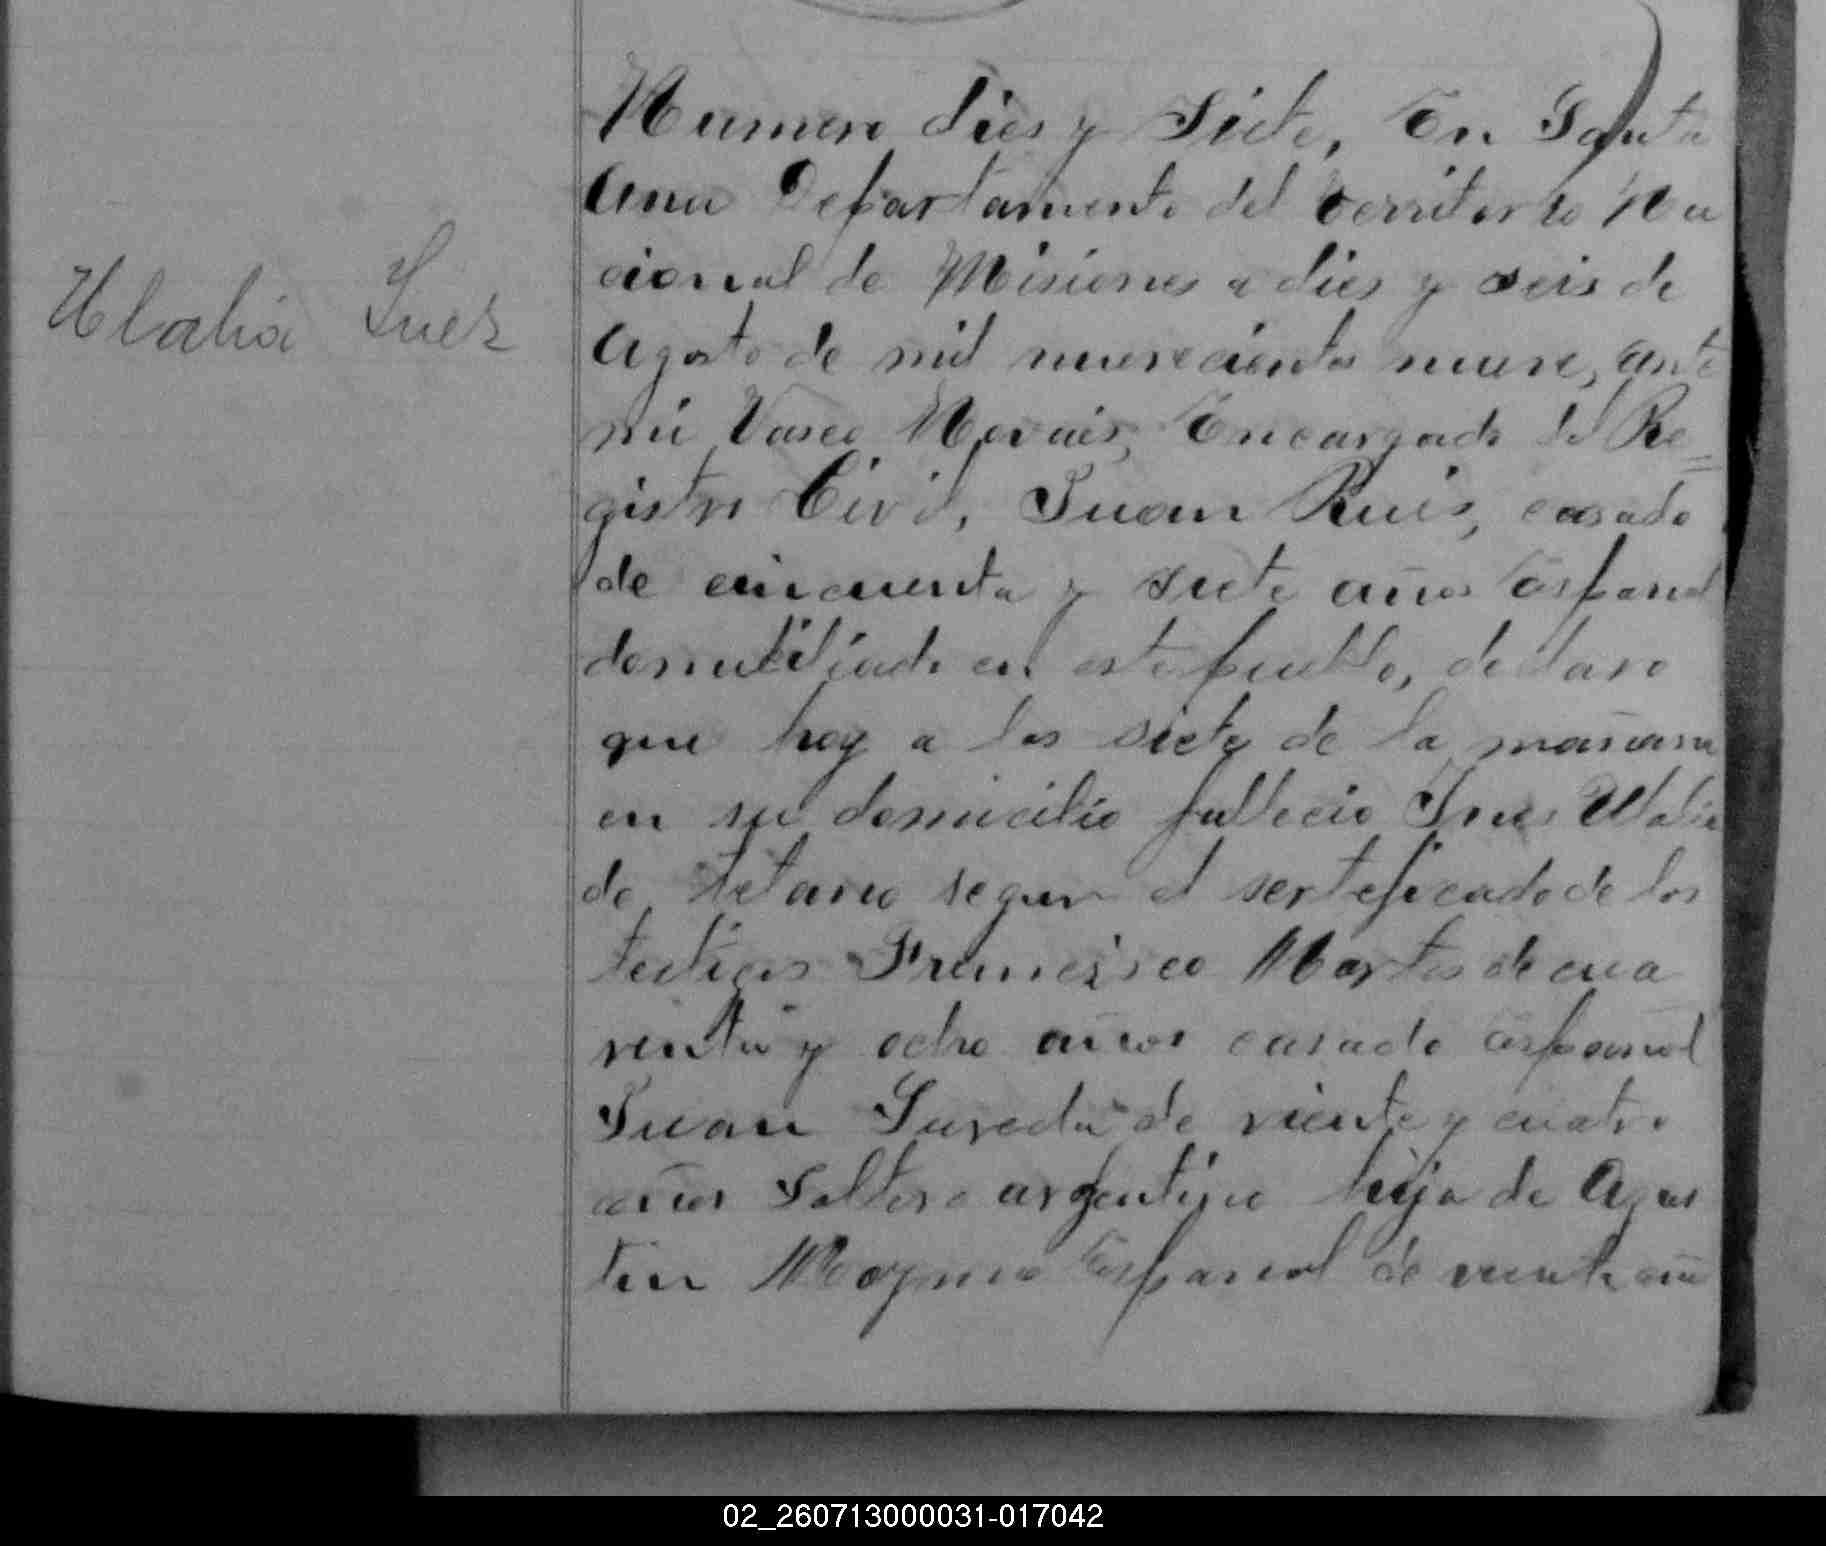 Numero dies y Siete, En Santa
Ana Departamento del Territorio Na
cional de Misiones a dies y seis de
Ulalia Inez
Agosto de mil nuevecientos nueve, ante
mi Vasco Novais, Encargado del Re=
gistro Civil, Juan Ruis, casado
de cincuenta y siete años Español
domiciliado en este pueblo, declaro
que hoy a las siete de la mañana
en su domicilio fallecio Ines Ulalia
de tetano segun el serteficado de los
testigos Francisco Martos de cua
renta y ocho años casado Español
Juan Sureda de viente y cuatro
años Soltero argentino hija de Agus
tin Español de viente
02_260713000031-017042